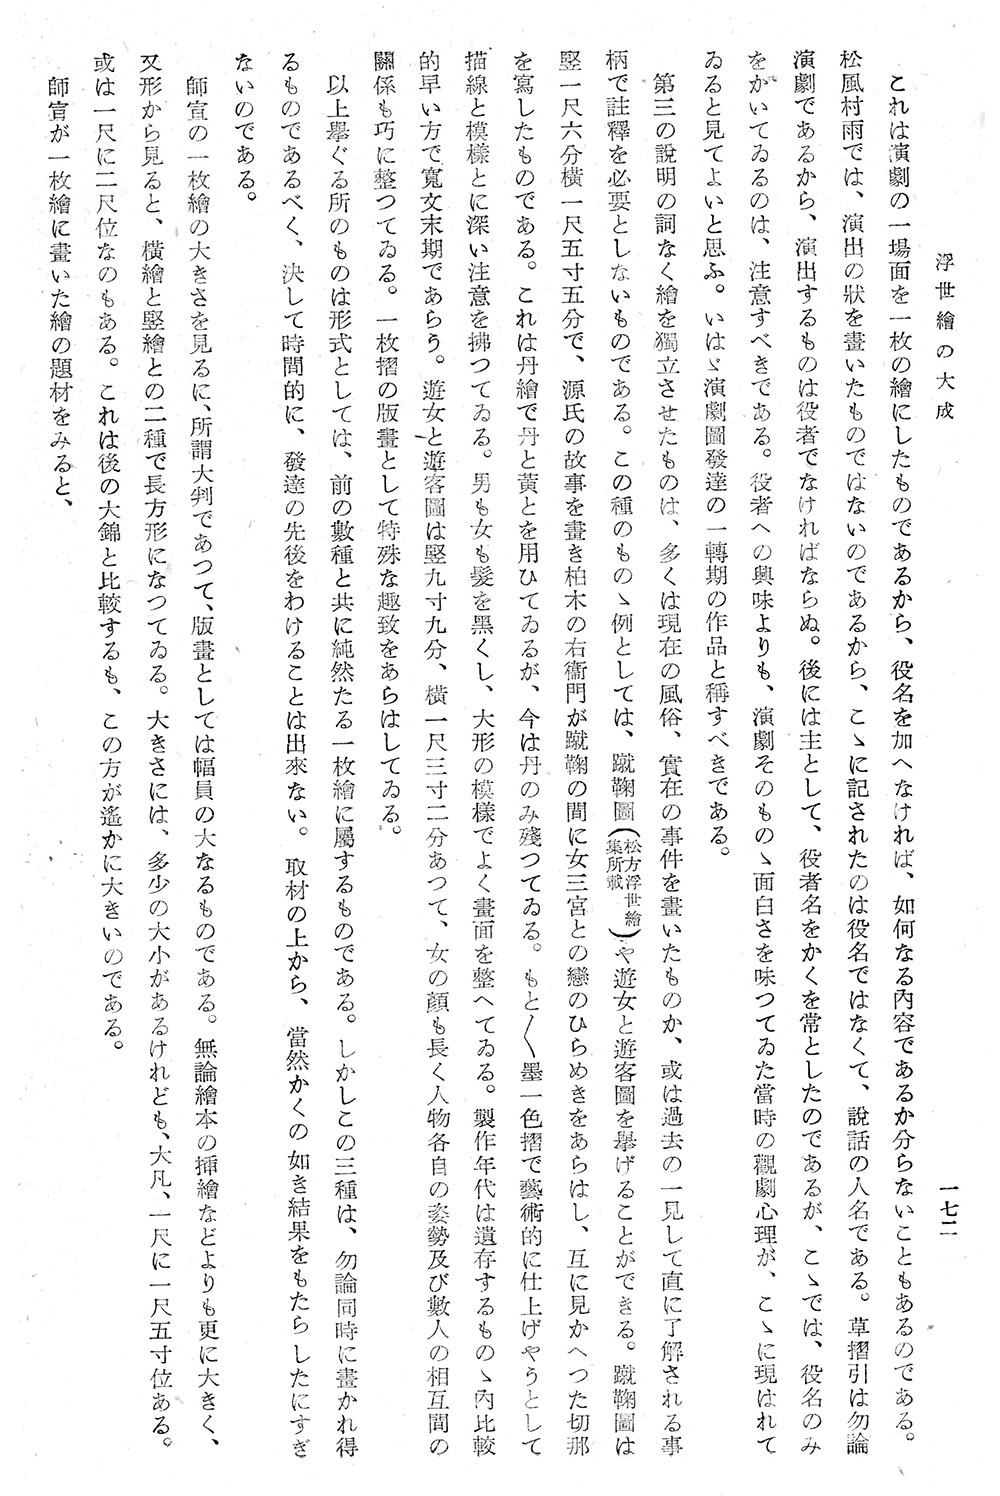 浮世繪の大成
一七二
これは演劇の一場面を一枚の繪にしたものであるから、役名を加へなければ、如何なる內容であるか分らないこともあるのである。
松風村雨では、演出の狀を畫いたものではないのであるから、こゝに記されたのは役名ではなくて、說話の人名である。草摺引は勿論
演劇であるから、演出するものは役者でなければならぬ。後には主として、役者名をかくを常としたのであるが、こゝでは、役名のみ
をかいてゐるのは、注意すべきである。役者への興味よりも、演劇そのものゝ面白さを味つてゐた當時の觀劇心理が、こゝに現はれて
ゐると見てよいと思ふ。いはゞ演劇圖發達の一轉期の作品と稱すべきである。
第三の說明の詞なく繪を獨立させたものは、多くは現在の風俗、實在の事件を畫いたものか、或は過去の一見して直に了解される事
柄で註釋を必要としないものである。この種のものゝ例としては、蹴鞠圖(松方浮世繪集所載)や遊女と遊客圖を擧げることができる。蹴鞠圖は
竪一尺六分橫一尺五寸五分で、源氏の故事を畫き柏木の右衞門が蹴鞠の間に女三宮との戀のひらめきをあらはし、互に見かへつた切那
を寫したものである。これは丹繪で丹と黃とを用ひてゐるが、今は丹のみ殘つてゐる。もと〳〵墨一色摺で藝術的に仕上げやうとして
描線と模樣とに深い注意を拂つてゐる。男も女も髮を黑くし、大形の模樣でよく畫面を整へてゐる。製作年代は遺存するものゝ內比較
的早い方で寬文末期であらう。遊女と遊客圖は竪九寸九分、橫一尺三寸二分あつて、女の顏も長く人物各自の姿勢及び數人の相互間の
關係も巧に整つてゐる。一枚摺の版畫として特殊な趣致をあらはしてゐる。
以上擧ぐる所のものは形式としては、前の數種と共に純然たる一枚繪に屬するものである。しかしこの三種は、勿論同時に畫かれ得
るものであるべく、決して時間的に、發達の先後をわけることは出來ない。取材の上から、當然かくの如き結果をもたらしたにすぎ
ないのである。
師宣の一枚繪の大きさを見るに、所謂大判であつて、版畫としては幅員の大なるものである。無論繪本の揷繪などよりも更に大きく、
又形から見ると、橫繪と竪繪との二種で長方形になつてゐる。大きさには、多少の大小があるけれども、大凡、一尺に一尺五寸位ある。
或は一尺に二尺位なのもある。これは後の大錦と比較するも、この方が遙かに大きいのである。
師宣が一枚繪に畫いた繪の題材をみると、